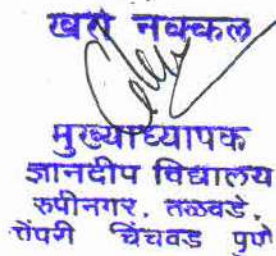 खरी नक्कल
मुख्याध्यापक
ज्ञानदीप विद्यालय
रुपीनगर, तळवडे,
पिंपरी चिंचवड पुणे